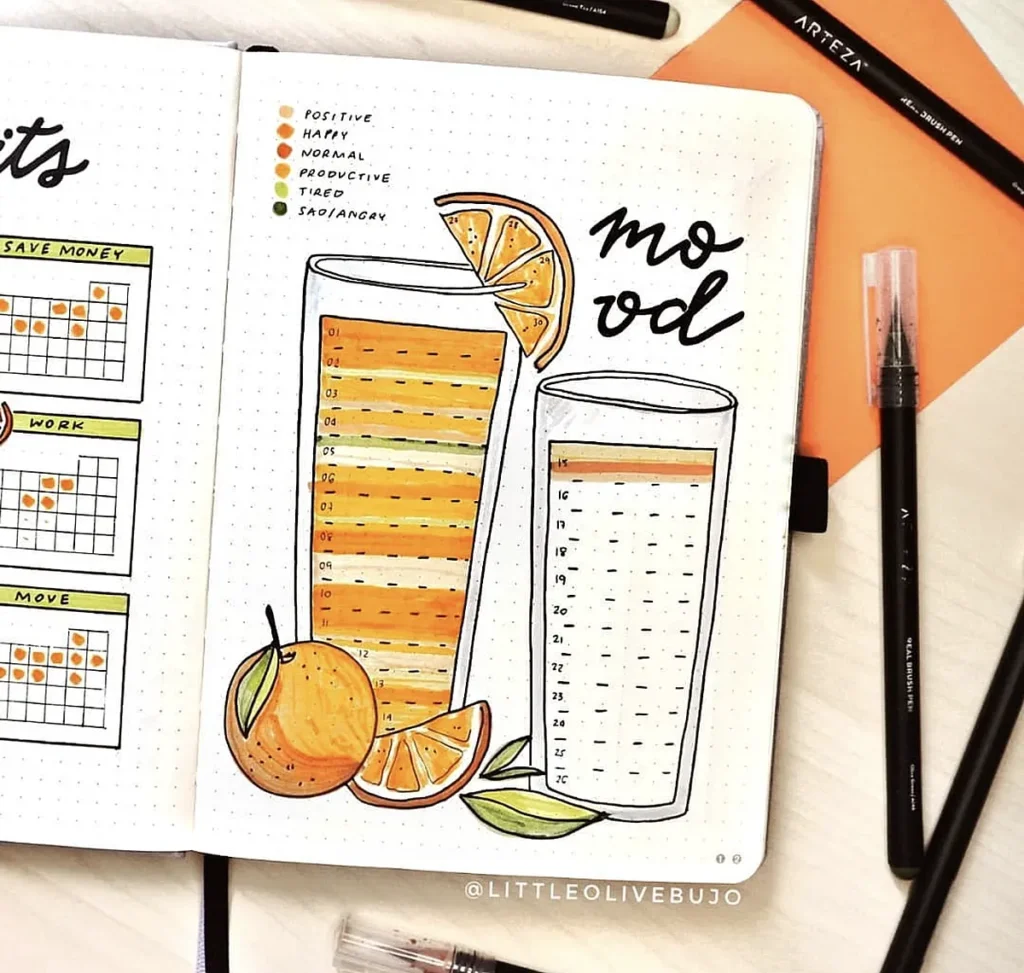 its
SAVE MONEY
WORK
MOVE
POSITIVE
HAPPY
NORMAL
PRODUCTIVE
TIRED
SAD/ANGRY
mo
od
01
02
03
04
05
06
07
08
09
10
11
12
13
14
28
29
30
15
16
17
18
19
20
21
22
23
24
25
26
1 2
@LITTLEOLIVEBUJO
ARTEZA
REAL BRUSH PEN
REAL BRUSH PEN